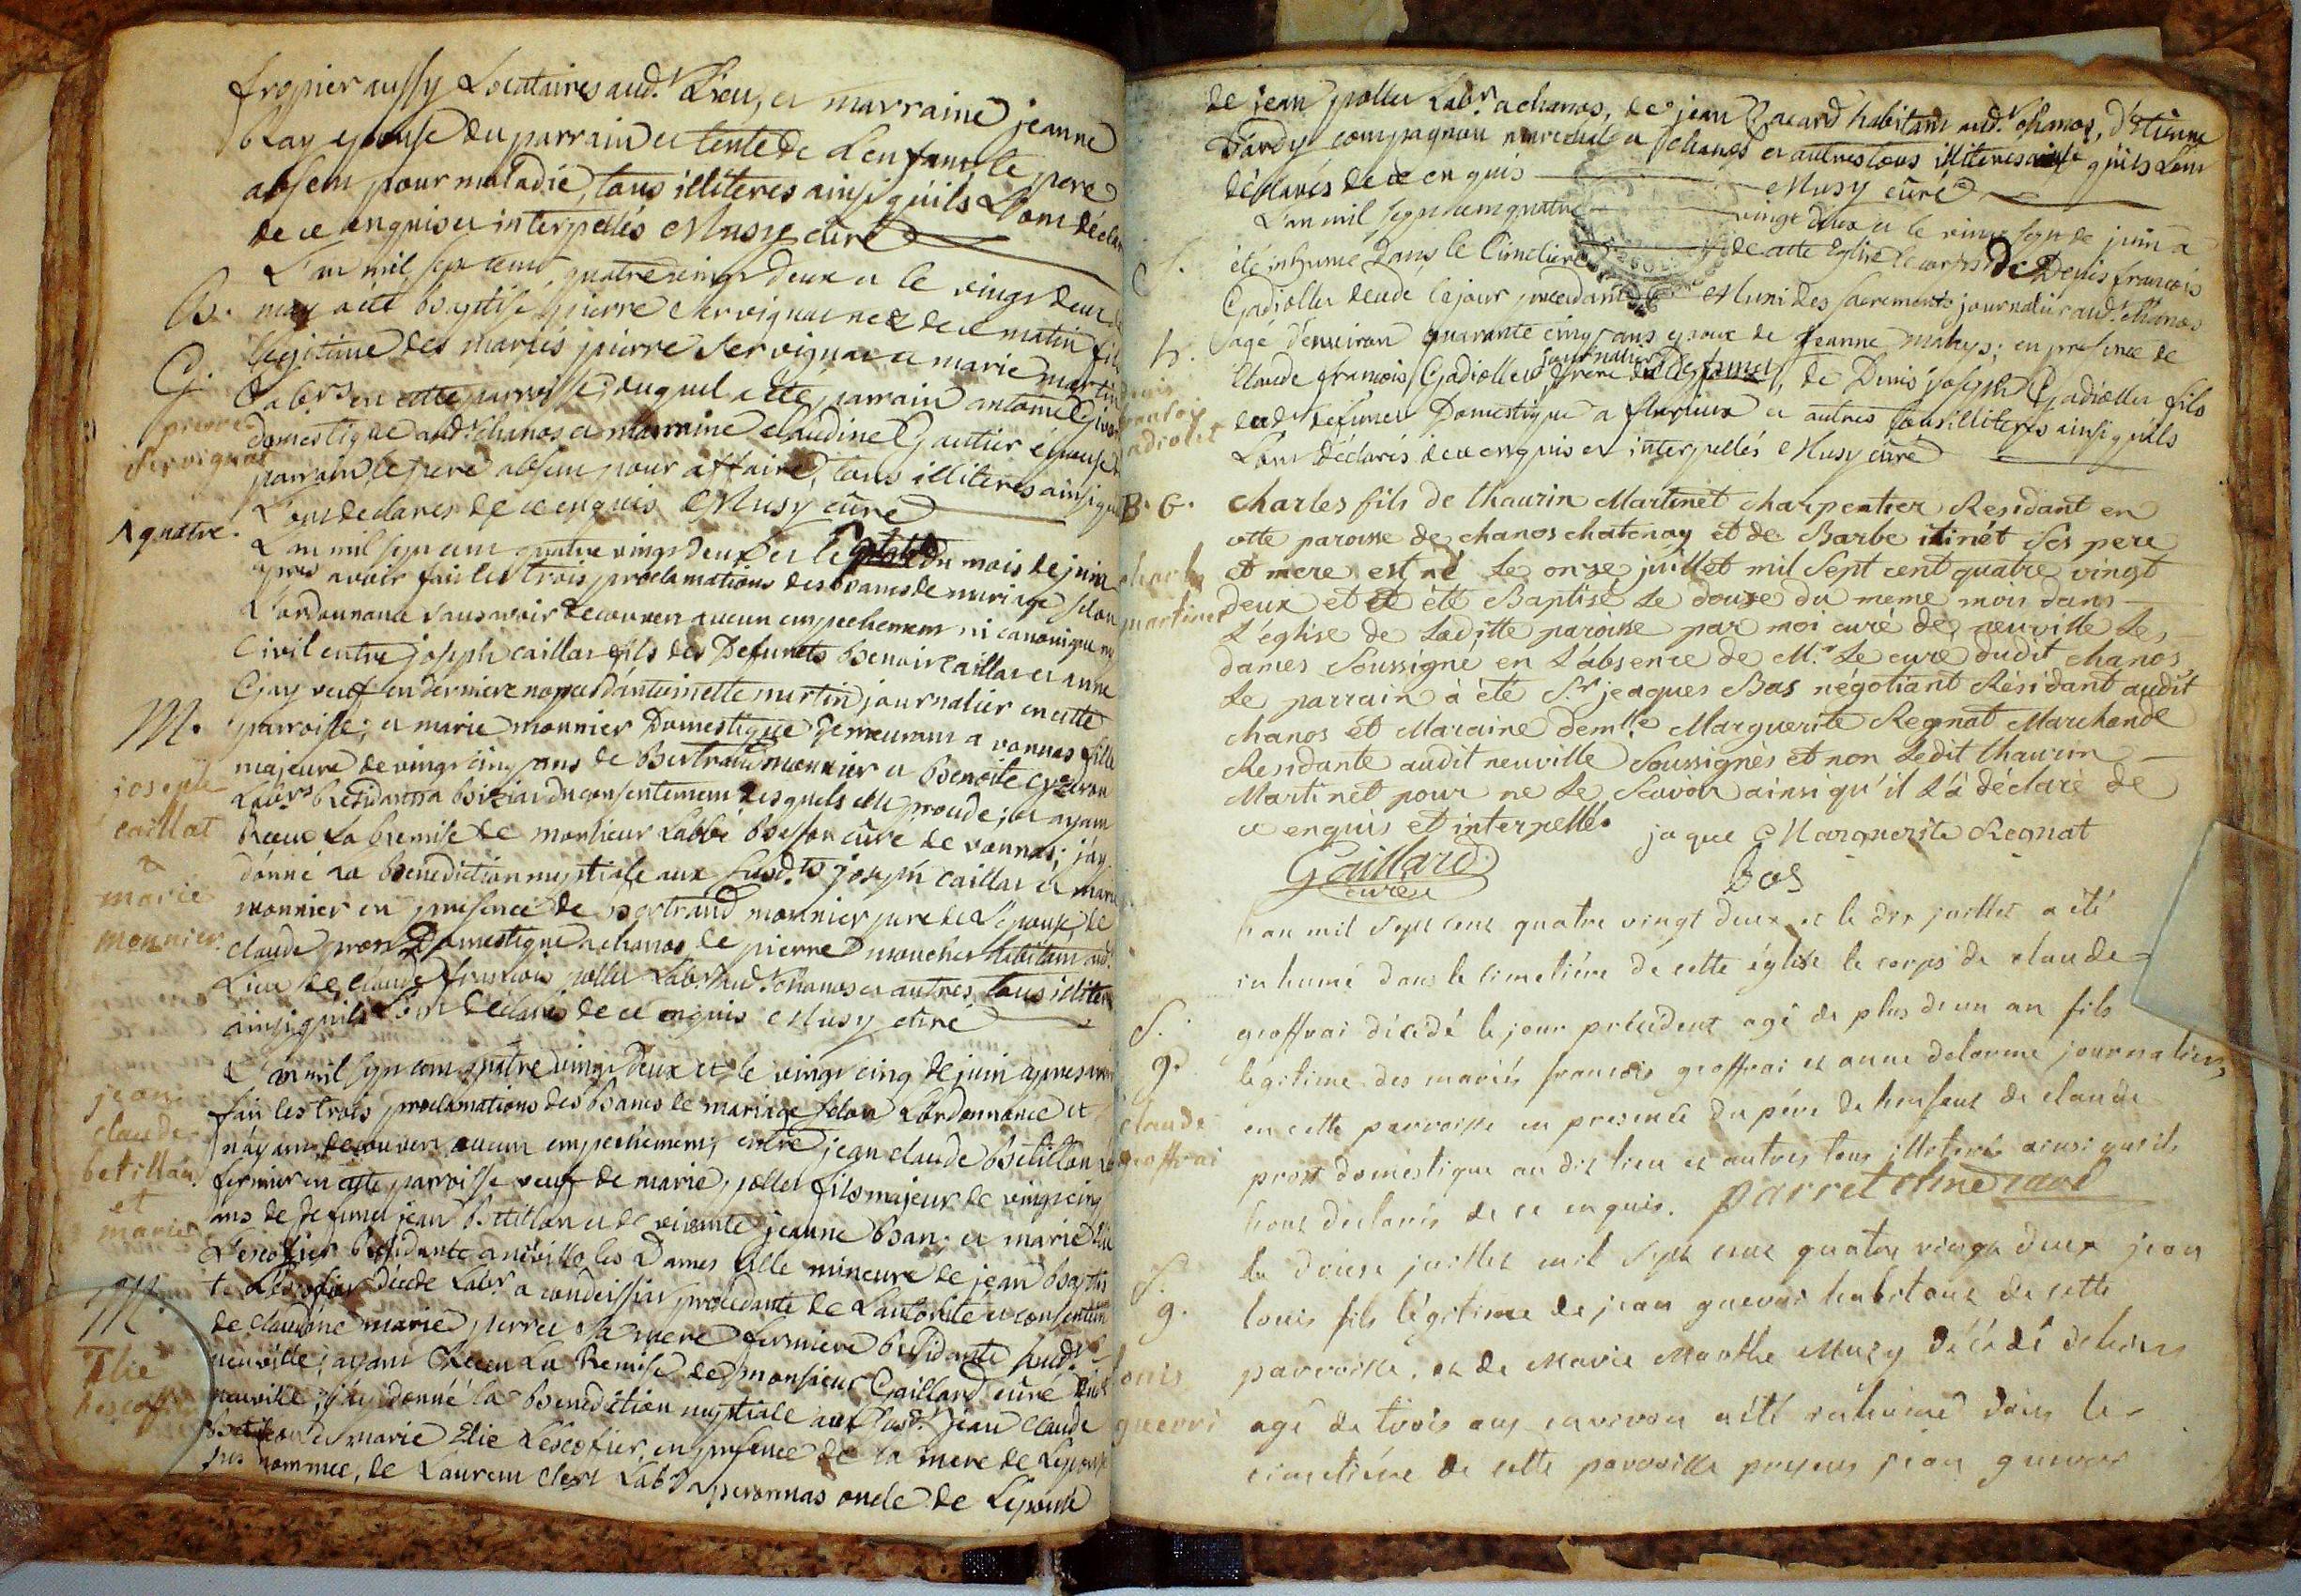 fropier aussy Locataires aud.t Lieu, et marraine jeanne
blay epouse du parrain et tente de Lenfant le pere
absent pour maladie, tous illiteres ainsi quils Lont déclar
de ce enquis et interpellés Musy curé
L'an mil sept cent quatre vingt deux et le vingt deux
B. may a été baptisé pierre servignat nez de ce matin fils
légitime des mariés pierre servignat et marie martin
G. Lab.rs en cette parroisse; duquel a été parrain antoine
pierre servignat
domestique aud.t chanos et marraine claudine Gautier épouse
parrain, le pere absent pour affaire, tous illiteres ainsi quils
Lont declares de ce enquis Musy curé
1 quatre.
L'an mil sept cent quatre vingt deux et le du mois de juin
apres avoir fait les trois proclamations des bancs de mariage selon
L'ordonnance sans avoir decouvert aucun empechement ni canonique ny
Civil entre joseph caillat fils des defunts benoit caillat et anne
Gay veuf en derniere nopces d'antoinette martin journalier en cette
M. parroisse; et marie monnier Domestique demeurant a vonnas fille
majeure de vingt cinq ans de Bertrand monnier et benoite
joseph caillat & marie monnier.
Lab.rs Residants a biziat du consentement desquels elle procede; et ayant
Receu La Remise de monsieur Labbé besson curé de vonnas; j'ay
donné La benediction nuptiale aux susd.ts joseph caillat et marie
monnier en presence de bertrand monnier pere de L'epouse, de
claude prost Domestique a chanos, de pierre moucher habitant aud.t
Lieu de claude francois pollet Lab.r aud.t chanos et autres tous illiteres
ainsi quils Lont déclarés de ce enquis Musy curé
L'an mil sept cent quatre vingt deux et le vingt cinq de juin apres avoir
fait les trois proclamations des bancs de mariage selon L'ordonnance et
jean claude betillon et marie
n'ayant decouvert aucun empechement, entre jean claude betillon
fermier en cette parroisse veuf de marie pollet fils majeur de vingt cinq
ans de defunt jean betillon et de vivante jeanne ban: et marie Elie
Lescofier Residante a neuville les Dames fille mineure de jean baptis
M. te Lescofier décedé Lab.r a condeissiat procedante de Lautorité et consentem
Elie Lescoffi
de claudine marie perret sa mere fermiere Residante aud.t
neuville; ayant Receu La Remise de monsieur Gaillard curé dud.t
neuville; j'ay donné la benediction nuptiale aux susd.ts jean claude
betillon et marie Elie Lescofier, en presence de la mere de Lepouse
sus nommée, de Laurent clerc Lab.r a peronnas oncle de Lepouse
de jean pollet Lab.r a chanos, de jean habitant aud.t chanos, d'Etienne
Dardy compagnon marechal a chanos et autres tous illiteres ainsi quils Lont
déclarés de ce enquis Musy curé
L'an mil sept cent quatre vingt deux et le vingt sept de juin a
S. été inhumé dans le Cimetiere de cette Eglise le corps de Denis francois
Gadiollet décedé le jour precedant Muni des sacrements journalier aud.t chanos
h. agé d'environ quarante cinq ans epoux de jeanne mathys; en presence de
Claude francois Gadiollet journalier frere du defunct, de Denis joseph Gadiollet fils
dud.t defunct Domestique a fleurieux et autres tous illiteres ainsi quils
Lont déclarés de ce enquis et interpellés Musy curé
B. G. charles fils de thaurin Martinet charpentier Residant en
cette paroisse de chanos chatenay et de Barbe itinét Ses pere
charles martinet
et mere est né le onze juillet mil Sept cent quatre vingt
deux et a été Baptisé le douze du meme mois dans
L'eglise de Laditte paroisse par moi curé de neuville les
dames Soussigné en L'absence de M.r Le curé dudit chanos,
Le parrain à été S.r jeaques Bas négotiant Résidant audit
chanos ét Maraine dem.lle Marguerite Regnat Marchande
Residante audit neuville Soussignés et non Ledit thaurin
Martinet pour ne Le Scavoir ainsi qu'il L'a déclaré de
ce enquis et interpellé. jaque Marguerite Regnat
Gaillard bas
curé
L'an mil sept cent quatre vingt deux et le dix juillet a été
inhumé dans le cimetiére de cette église le corps de claude
S. geoffrai décédé le jour précédent agé de plus de un an fils
g. légitime des mariés francois geoffrai et anne delorme journaliers
claude geoffrai
en cette parroisse en presence du pére de lenfant de claude
prost domestique au dit lieu et autres tous illiterés ainsi quils
lont declarés de ce enquis. parret
S. Le douze juillet mil sept cent quatre vingt deux jean
g. louis fils légitime de jean guerri habitant de cette
louis guerri
parroisse, et de Marie Marthe Muzy décédé dehiers
agé de trois ans environ a été inhumé dans le
cimetiére de cette parroisse presens jean guerri